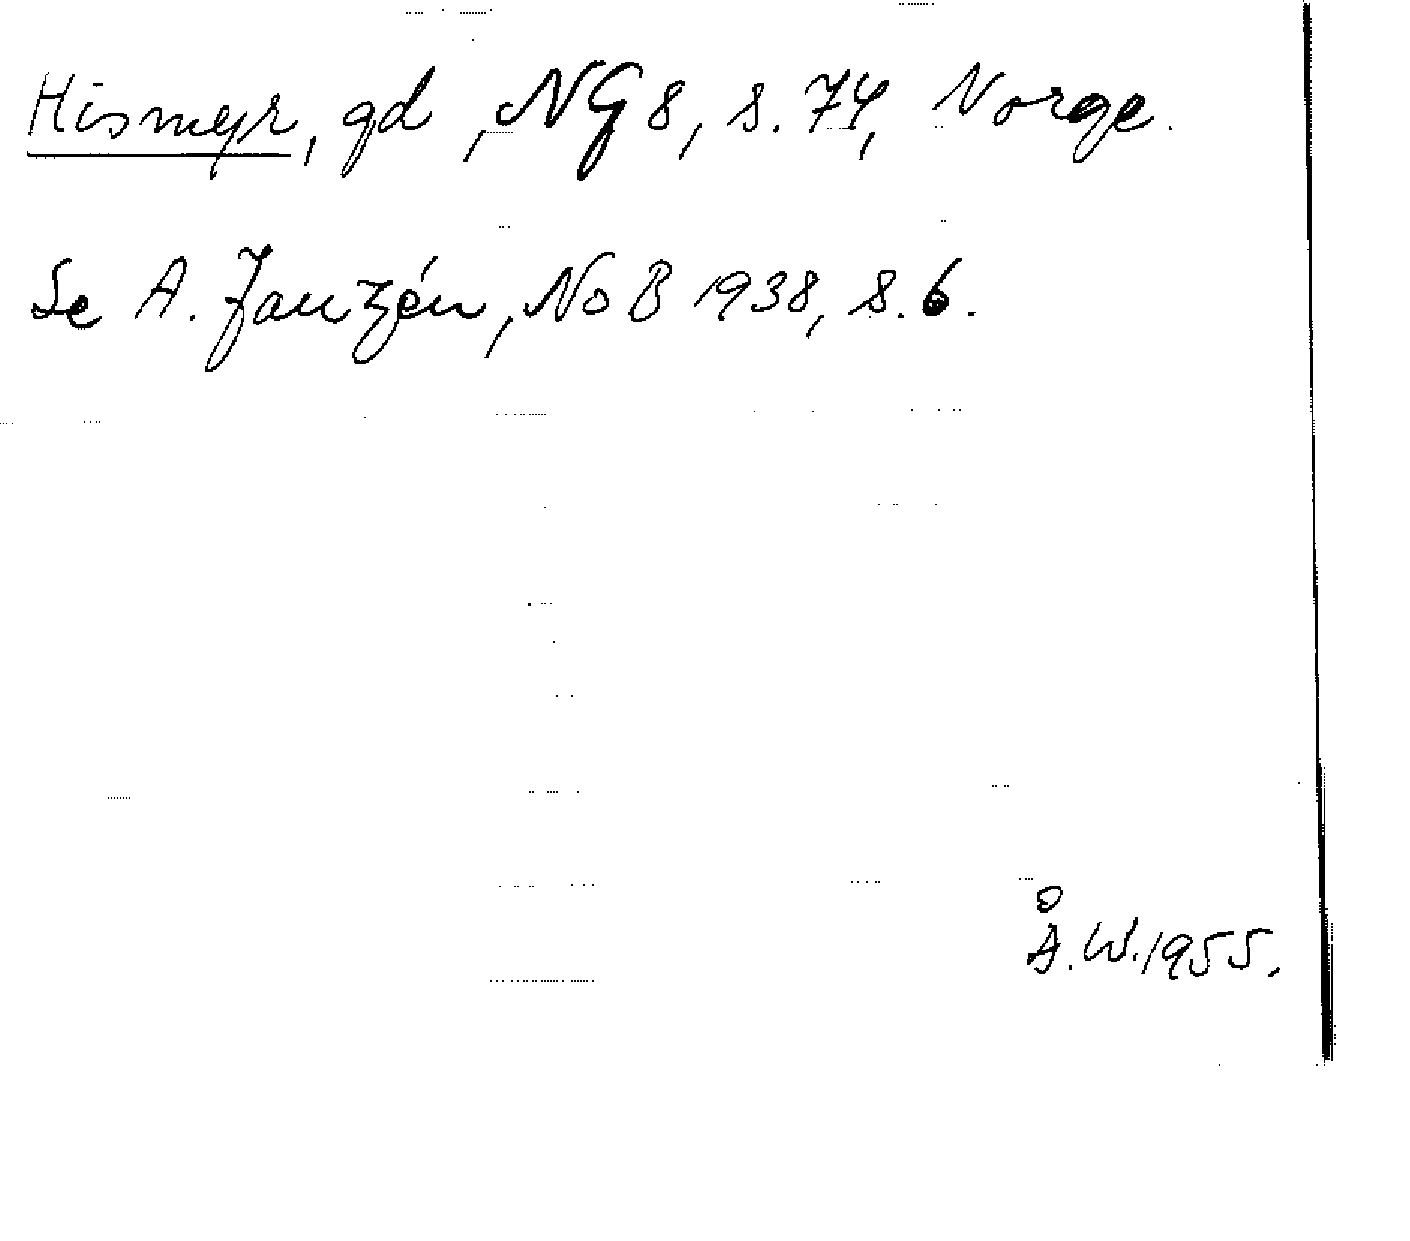 Hismyr, gd, NG 8, s. 74, Norge.
Se A. Janzén, NoB 1938, s. 6.
Å. W. 1955.